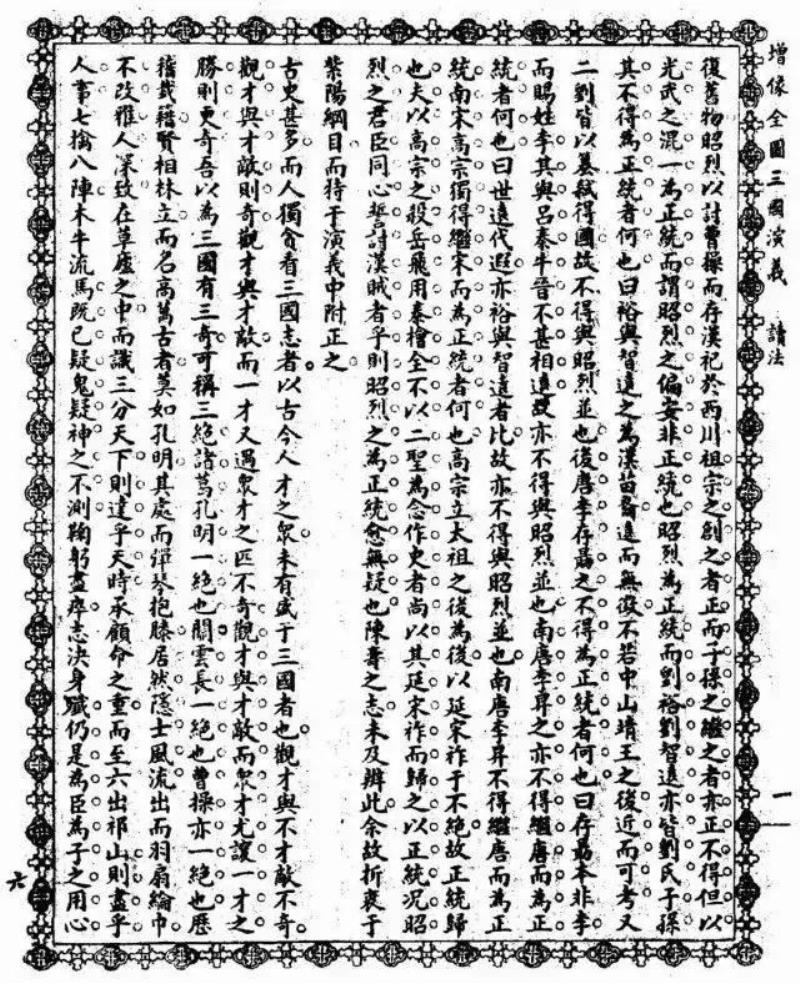 增像全圖三國演義　讀法　一
復舊物昭烈以討曹操而存漢祀於西川祖宗之創之者正而子孫之繼之者亦正不得但以
光武之混一為正統而謂昭烈之偏安非正統也昭烈為正統而劉裕劉智遠亦皆劉氏子孫
其不得為正統者何也曰裕與智遠之為漢苗裔遠而無徵不若中山靖王之後近而可考又
二劉皆以篡弒得國故不得與昭烈並也後唐李存勗之不得為正統者何也曰存勗本非李
而賜姓李其與呂秦牛晉不甚相遠故亦不得與昭烈並也南唐李昪之亦不得繼唐而為正
統者何也曰世遠代遐亦裕與智遠者比故亦不得與昭烈並也南唐李昇不得繼唐而為正
統南宋高宗獨得繼宋而為正統者何也高宗立太祖之後為後以延宋祚于不絕故正統歸
也夫以高宗之殺岳飛用秦檜全不以二聖為念作史者尚以其延宋祚而歸之以正統況昭
烈之君臣同心誓討漢賊者乎則昭烈之為正統愈無疑也陳壽之志未及辨此余故折衷于
紫陽綱目而特于演義中附正之
古史甚多而人獨貪看三國志者以古今人才之眾未有盛于三國者也觀才與不才敵不奇
觀才與才敵則奇觀才與才敵而一才又遇眾才之匹不奇觀才與才敵而眾才尤讓一才之
勝則更奇吾以為三國有三奇可稱三絕諸葛孔明一絕也關雲長一絕也曹操亦一絕也歷
稽載籍賢相林立而名高萬古者莫如孔明其處而彈琴抱膝居然隱士風流出而羽扇綸巾
不改雅人深致在草廬之中而識三分天下則達乎天時承顧命之重而至六出祁山則盡乎
人事七擒八陣木牛流馬既已疑鬼疑神之不測鞠躬盡瘁志決身殲仍是為臣為子之用心
六